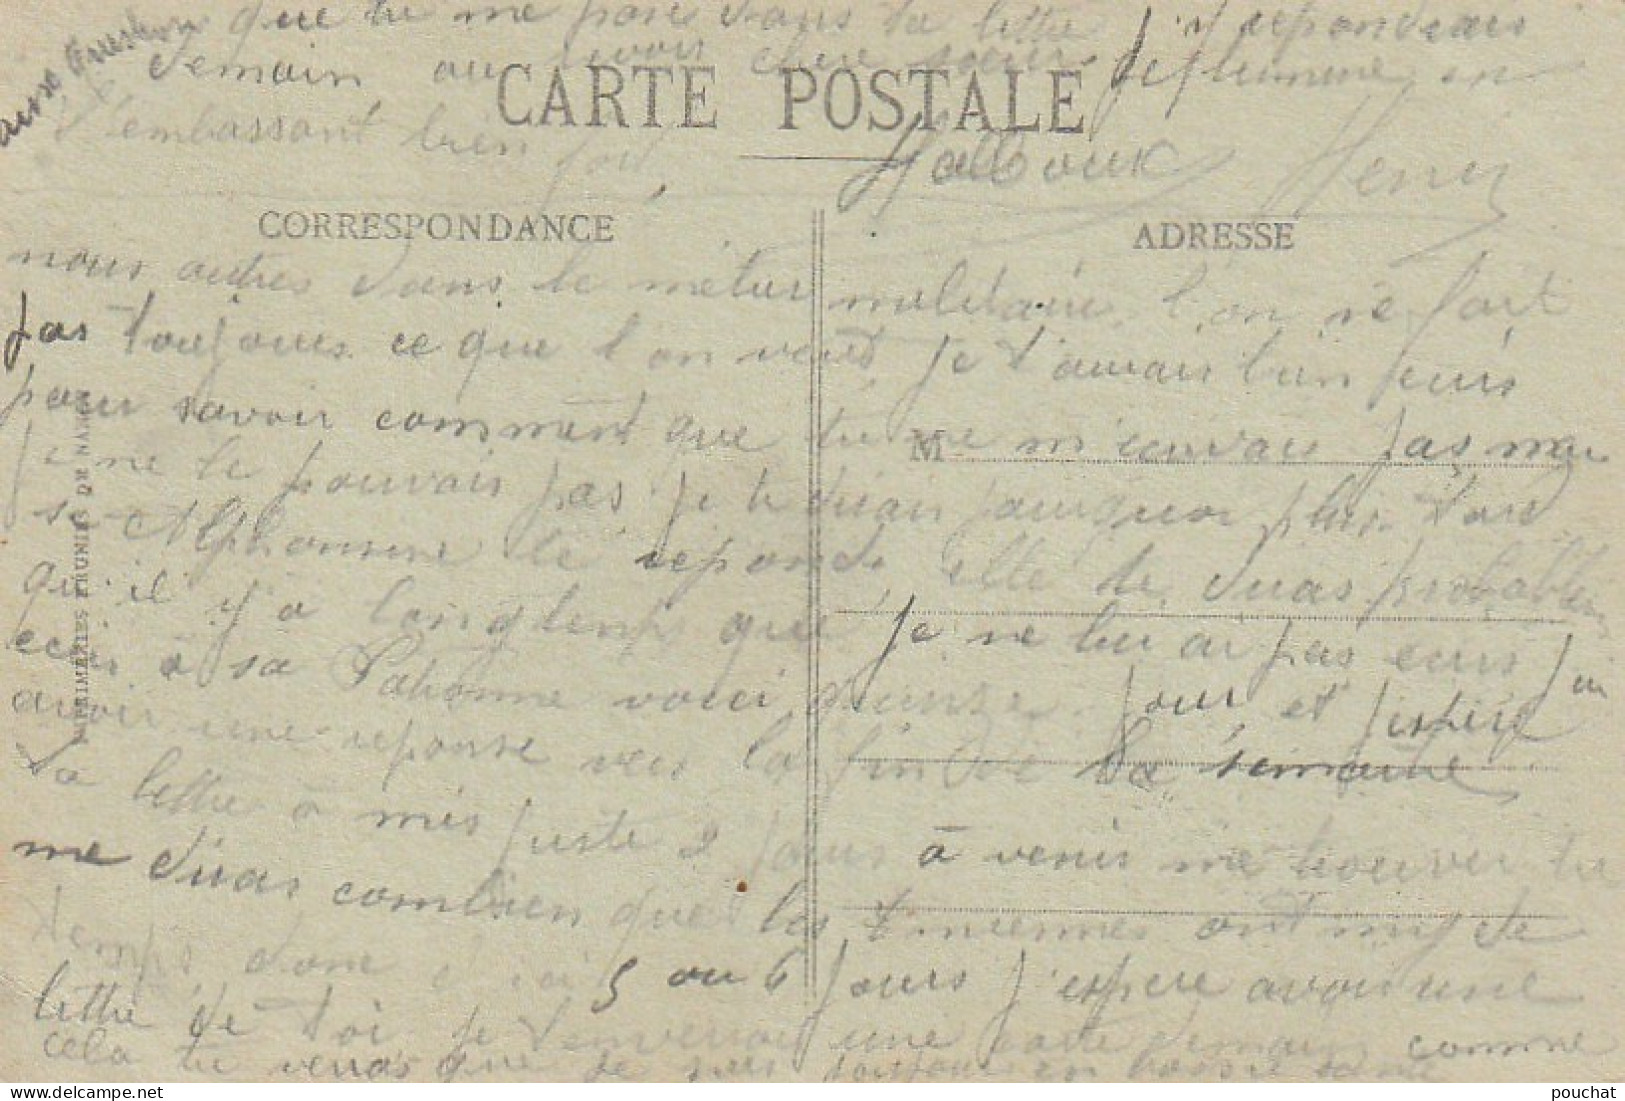 que tu me poses dans ta lettre j'y repondrais
demain au revoir chere soeur je termine en
t'embassant bien fort
Henri
CARTE POSTALE
CORRESPONDANCE
ADRESSE
nous autres dans le metier militaire l'on ne fait
pas toujours ce que l'on veut je t'aurais bien ecris
pour savoir comment que tu ne m'ecrivais pas mais
je ne le pouvais pas je te dirais pourquoi plus tard
si Alphonsine te reponds elle te diras probablement
qu'il y'a longtemps que je ne lui ai pas ecris j'ai
ecris à sa Patronne voici quinze jours et j'espere
avoir une reponse vers la fin de la semaine
Ta lettre à mis juste 2 jours à venir me trouver tu
me diras combien que les miennes ont mis de
temps donc d'ici 5 ou 6 jours j'espere avoir une
lettre de toi je t'enverrai une carte demain comme
cela tu verras que je suis toujours en bonne sante
M
IMPRIMERIES REUNIES DE NANCY
pouchat